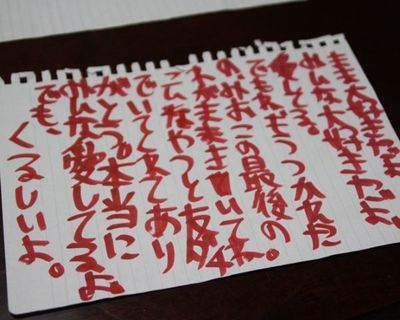 大好きだよ。
みんな大好きだよ。
愛してる。
つかれた
この最後の
わがままきいて
こんなやつと友達
でいてくれてあり
がとう。本当に
みんな愛してるよ
でも、
くるしいよ。